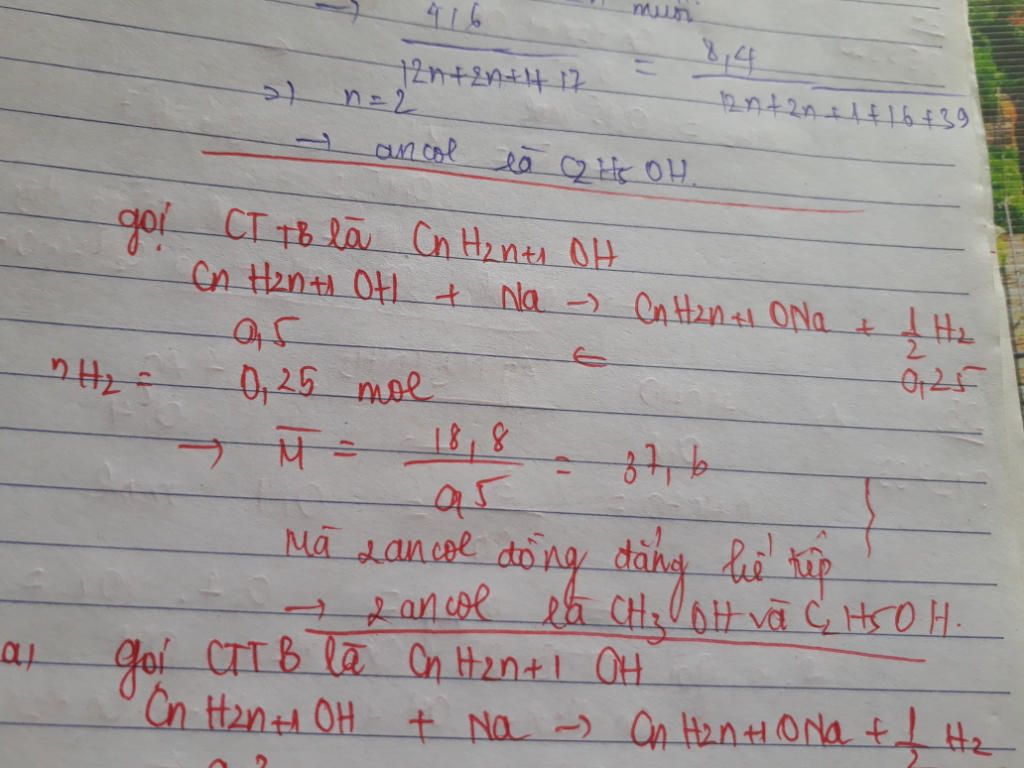 → muối
4,6 / 12n+2n+1+17 = 8,4 / 12n+2n+1+16+39
=> n=2
→ ancol là C2H5OH.
gọi CTTB là CnH2n+1 OH
CnH2n+1 OH + Na → CnH2n+1 ONa + 1/2 H2
0,5 ← 0,25
nH2 = 0,25 mol
→ M̅ = 18,8 / 0,5 = 37,6
Mà 2 ancol đồng đẳng liê tiếp
→ 2 ancol là CH3OH và C2H5OH.
a, gọi CTTB là CnH2n+1 OH
CnH2n+1 OH + Na → CnH2n+1 ONa + 1/2 H2